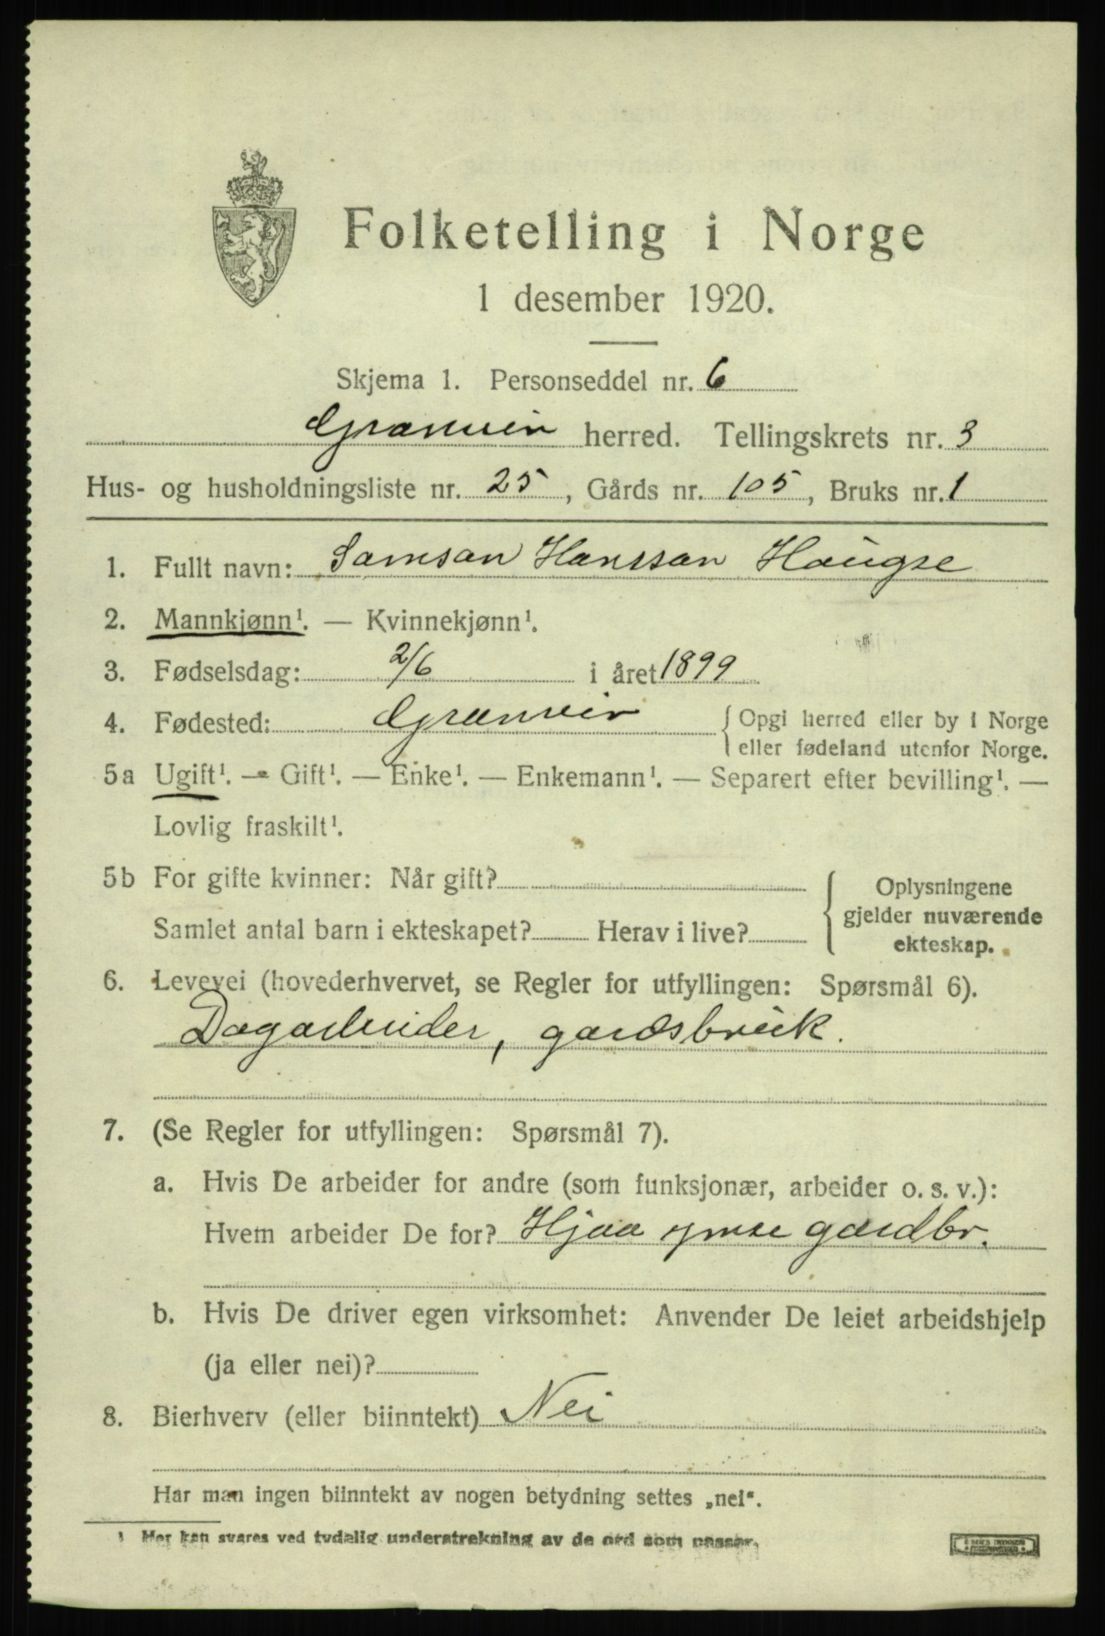 Folketelling i Norge
1 desember 1920.
Skjema 1. Personseddel nr. 6
Granvin herred. Tellingskrets nr. 3
Hus- og husholdningsliste nr. 25, Gårds nr. 105, Bruks nr. 1
1. Fullt navn: Samson Hansson Haugse
2. Mannkjønn¹. — Kvinnekjønn¹.
3. Fødselsdag: 2/6 i året 1899
4. Fødested: Granvin { Opgi herred eller by i Norge
eller fødeland utenfor Norge.
5a Ugift¹. — Gift¹. — Enke¹. — Enkemann¹. — Separert efter bevilling¹. —
Lovlig fraskilt¹.
5b For gifte kvinner: Når gift?
Samlet antal barn i ekteskapet? Herav i live?
{ Oplysningene
gjelder nuværende
ekteskap.
6. Levevei (hovederhvervet, se Regler for utfyllingen: Spørsmål 6).
Dagarbeider, gardsbruk.
7. (Se Regler for utfyllingen: Spørsmål 7).
a. Hvis De arbeider for andre (som funksjonær, arbeider o. s. v.):
Hvem arbeider De for? Hjaa ymse gardbr.
b. Hvis De driver egen virksomhet: Anvender De leiet arbeidshjelp
(ja eller nei)?
8. Bierhverv (eller biinntekt) Nei
Har man ingen biinntekt av nogen betydning settes „nei“.
¹ Her kan svares ved tydelig understrekning av de ord som passer.